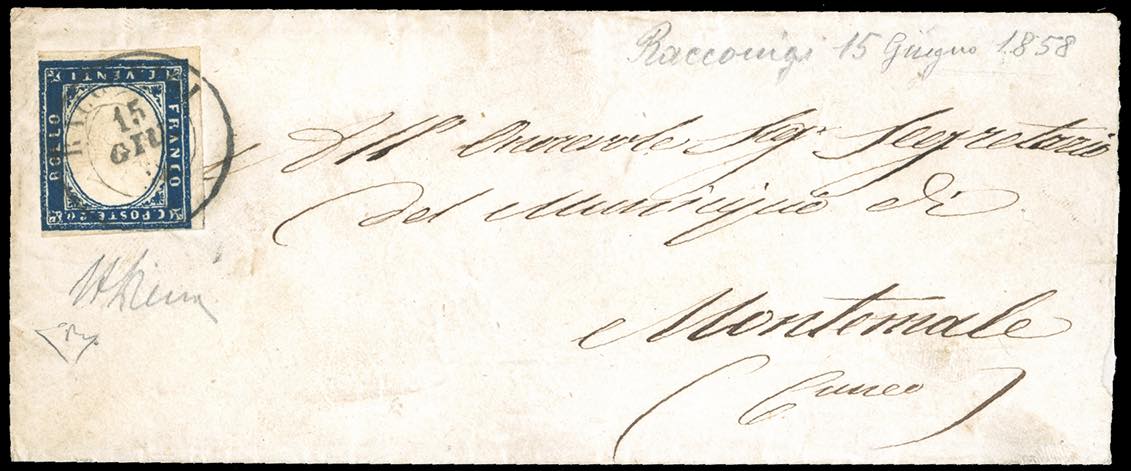 Racconigi 15 Giugno 1858
C. VENTI
BOLLO
FRANCO
C. POSTE 20
15
GIU
All' Onorevole Sigr Segretario
del Municipio di
Montemale
(Cuneo)